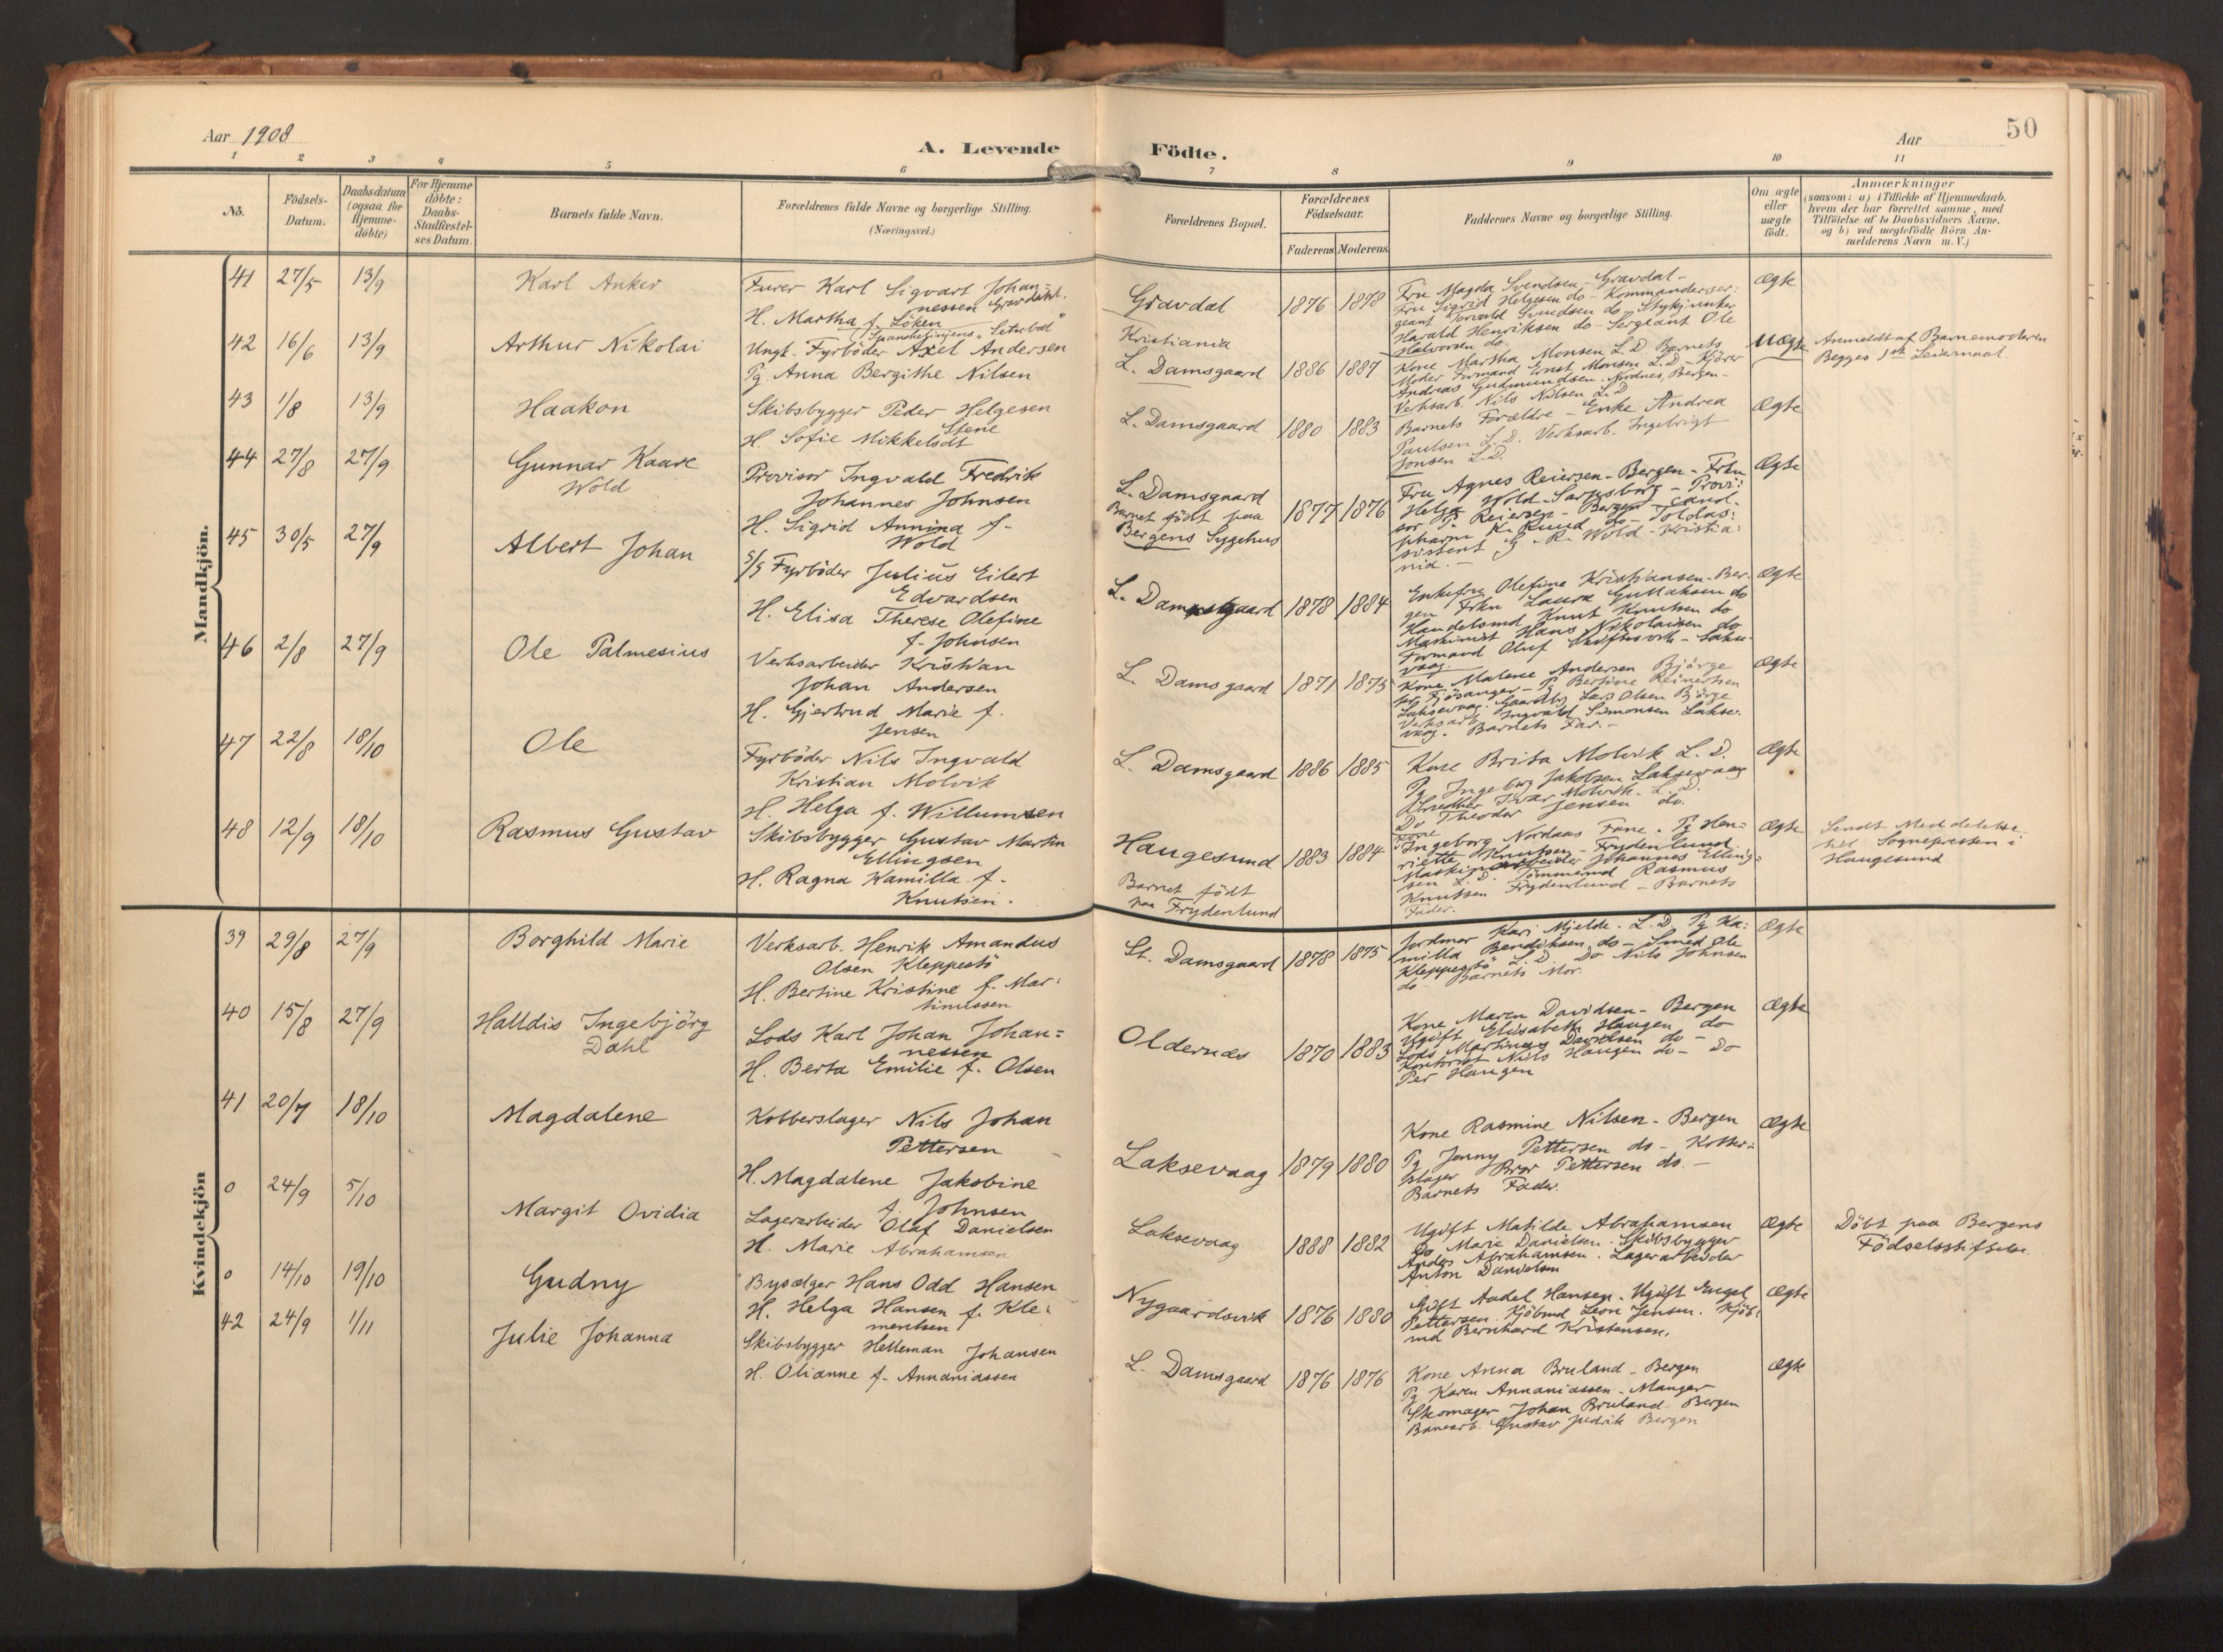 Aar 1908
A. Levende
Födte.
Aar
50
1 2 3 4 5 6 7 8 9 10 11
No.
Födsels-
Datum.
Daabsdatum
(ogsaa for
Hjemme-
döbte)
For Hjemme
döbte:
Daabs-
Stadfæstel-
ses Datum.
Barnets fulde Navn.
Forældrenes fulde Navne og borgerlige Stilling.
(Næringsvei.)
Forældrenes Bopæl.
Forældrenes
Födselsaar.
Faderens Moderens
Faddernes Navne og borgerlige Stilling.
Om ægte
eller
uægte
födt.
Anmærkninger
(saasom: a) i Tilfælde af Hjemmedaab,
hvem der har forrettet samme, med
Tilföielse af to Daabsvidners Navne,
og b) ved uægtefödte Börn An-
melderens Navn m. V.)
Mandkjön.
41 27/5 13/9 Karl Anker
Furer Karl Sigvart Johan=
nessen Gravdahl.
H. Martha f. Löken
Gravdal 1876 1878
Fru Magda Svendsen - Gravdal -
Fru Sigrid Helgesen do - Kommanderser:
geant Torvald Svendsen do Stykjunker
Harald Henriksen do - Sergeant Ole
Halvorsen do.
Ægte
42 16/6 13/9 Arthur Nikolai
(Spanskelinjens "Setubal"
Ungk. Fyrböder Axel Andersen
Pg. Anna Bergithe Nilsen
Kristiania
L. Damsgaard 1886 1887
Kone Martha Monsen L. D. Barnets
Moder Formand Ernst Monsen L. D. - Kjörer
Andreas Gudmundsen. Nordnes, Bergen -
Verksarb. Nils Nilsen L. D
Uægte
Anmeldt af Barnemoderen
Begges 1ste Leiermaal.
43 1/8 13/9 Haakon
Skibsbygger Peder Helgesen
Stene
H. Sofie Mikkelsdt
L. Damsgaard 1880 1883
Barnets Forældre - Enke Andrea
Paulsen L. D. Verksarb. Ingebrigt
Jonsen L. D.
Ægte
44 27/8 27/9 Gunnar Kaare
Wold
Provisor Ingvald Fredrik
Johannes Johnsen
H. Sigrid Annina f.
Wold
L. Damsgaard
Barnet födt paa
Bergens Sygehus
1877 1876
Fru Agnes Reiersen - Bergen - Frkn
Helga Wold - Sarpsborg - Provi:
sor P. Reiersen - Bergen cand.
pharm K. Ruud do - Toldas:
sistent G. R. Wold - Kristia:
nia. -
Ægte
45 30/5 27/9 Albert Johan
S/S Fyrböder Julius Eilert
Edvardsen
H. Elisa Therese Olefine
f. Johnsen
L. Damsgaard 1878 1884
Enkefru Olefine Kristiansen - Ber-
gen Frkn Laura Gullaksen do
Handelsmd Knut Knutsen do
Maskinist Hans Nikolaisen do
Formand Oluf Skiftesvik - Lakse-
vaag.
Ægte
46 2/8 27/9 Ole Palmesius
Verksarbeider Kristian
Johan Andersen
H. Gjertrud Marie f.
Jensen
L. Damsgaard 1871 1875
Kone Malene Andersen Björge
pr Fjösanger - Pg Bertine Reinertsen
Laksevaag. Gaardbr Lars Olsen Björge
Verksarb Ingvald Simonsen Lakse-
vaag. Barnets Far. -
Ægte
47 22/8 18/10 Ole
Fyrböder Nils Ingvald
Kristian Molvik
H. Helga f. Willumsen
L. Damsgaard 1886 1885
Kone Brita Molvik L. D.
Pg Ingeborg Jakobsen Laksevaag
Ivar Molvik. L. D.
Do Theodor Jensen do.
Ægte
48 12/9 18/10 Rasmus Gustav
Skibsbygger Gustav Martin
Ellingsen
H. Ragna Kamilla f.
Knutsen.
Haugesund
Barnet födt
paa Frydenlund
1883 1884
Kone
Ingeborg Nordaas Fane. Pg Hen=
riette Knutsen - Frydenlund
Maskinarbeider Johannes Elling:
sen L. D. Tömmermd Rasmus
Knutsen Frydenlund - Barnets
Fader.
Ægte
Sendt Meddelelse
til Sognepresten i
Haugesund
Kvindekjön
39 29/8 27/9 Borghild Marie
Verksarb. Henrik Amandus
Olsen Kleppestö
H. Bertine Kristine f. Mar:
tinussen
St. Damsgaard 1878 1875
Jordmor Kari Mjelde. L. D. Pg Ka:
milla Bendiksen do - Smed Ole
Kleppestö L. D. Do Nils Johnsen
do - Barnets Mor.
Ægte
40 15/8 27/9 Halldis Ingebjörg
Dahl
Lods Karl Johan Johan=
nessen
H. Berta Emilie f. Olsen
Oldernes 1870 1883
Kone Maren Davidsen - Bergen
Ugift Elisabeth Haugen do
Lods Martinus Davidsen do -
Kontorist Nils Haugen do - Do
Per Haugen
Ægte
41 20/7 18/10 Magdalene
Kobberslager Nils Johan
Pettersen
H. Magdalene Jakobine
f. Johnsen
Laksevaag 1879 1880
Kone Rasmine Nilsen - Bergen
Pg Jenny Pettersen do - Kobber=
slager Bror Pettersen do. -
Barnets Fader.
Ægte
0 24/9 5/10 Margit Ovidia
Lagerarbeider Olaf Danielsen
H. Marie Abrahamsen
Laksevaag 1888 1882
Ugift Matilde Abrahamsen
Do Marie Danielsen. Skibsbygger
Anders Abrahamsen. Lagerarbeider
Anton Danielsen
Ægte
Döbt paa Bergens
Födselsstiftelse.
0 14/10 19/10 Gudny
Bysælger Hans Odd Hansen
H. Helga Hansen f. Kle:
mentsen
Nygaardsvik 1876 1880
Gift Andel Hansen. Ugift Engel
Pettersen. Kjöbmd Leon Jensen. Kjöb:
md Bernhard Kristensen.
Ægte
42 24/9 1/11 Julie Johanna
Skibsbygger Helleman Johansen
H. Olianne f. Annaniassen
L. Damsgaard 1876 1876
Kone Anna Bruland - Bergen
Pg Karen Annaniassen - Manger
Skomager Johan Bruland - Bergen
Banearb. Gustav Bergen
Ægte